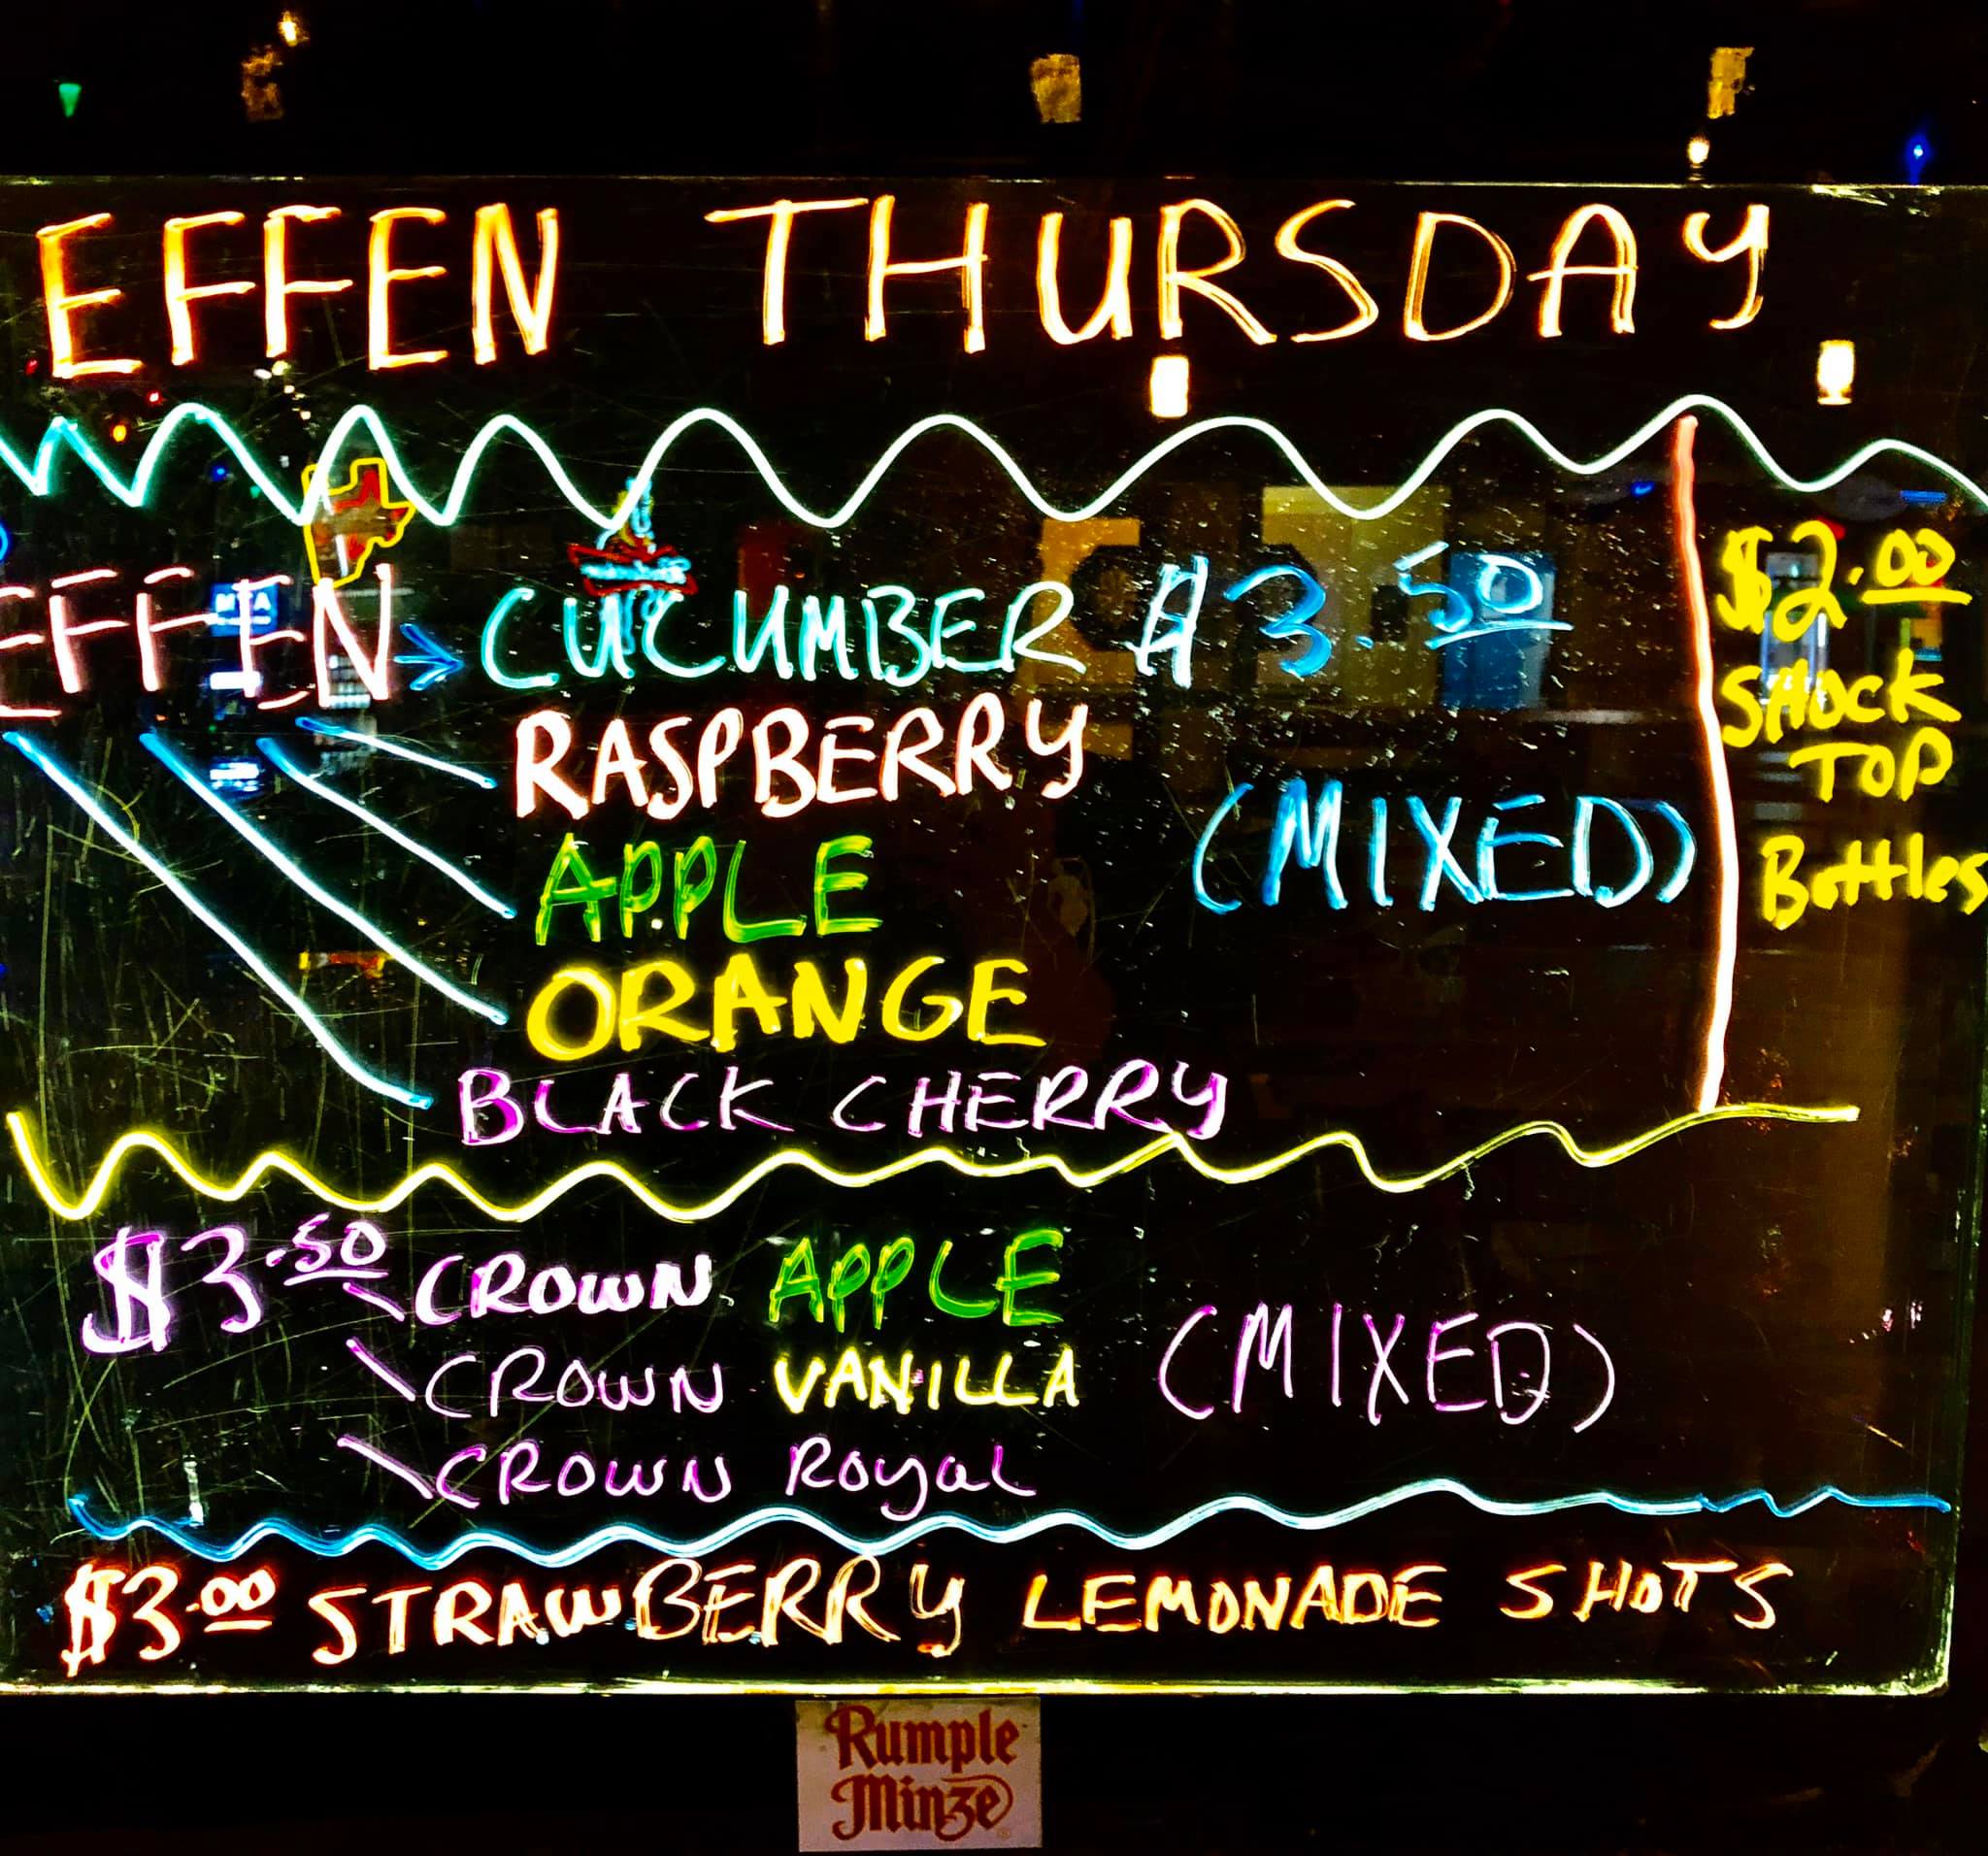 EFFEN THURSDAY
EFFEN → CUCUMBER $3.50
RASPBERRY
APPLE
(MIXED)
ORANGE
BLACK CHERRY
$2.00
SHOCK
TOP
Bottles
$3.50 CROWN APPLE
CROWN VANILLA (MIXED)
CROWN Royal
$3.00 STRAWBERRY LEMONADE SHOTS
Rumple
Minze